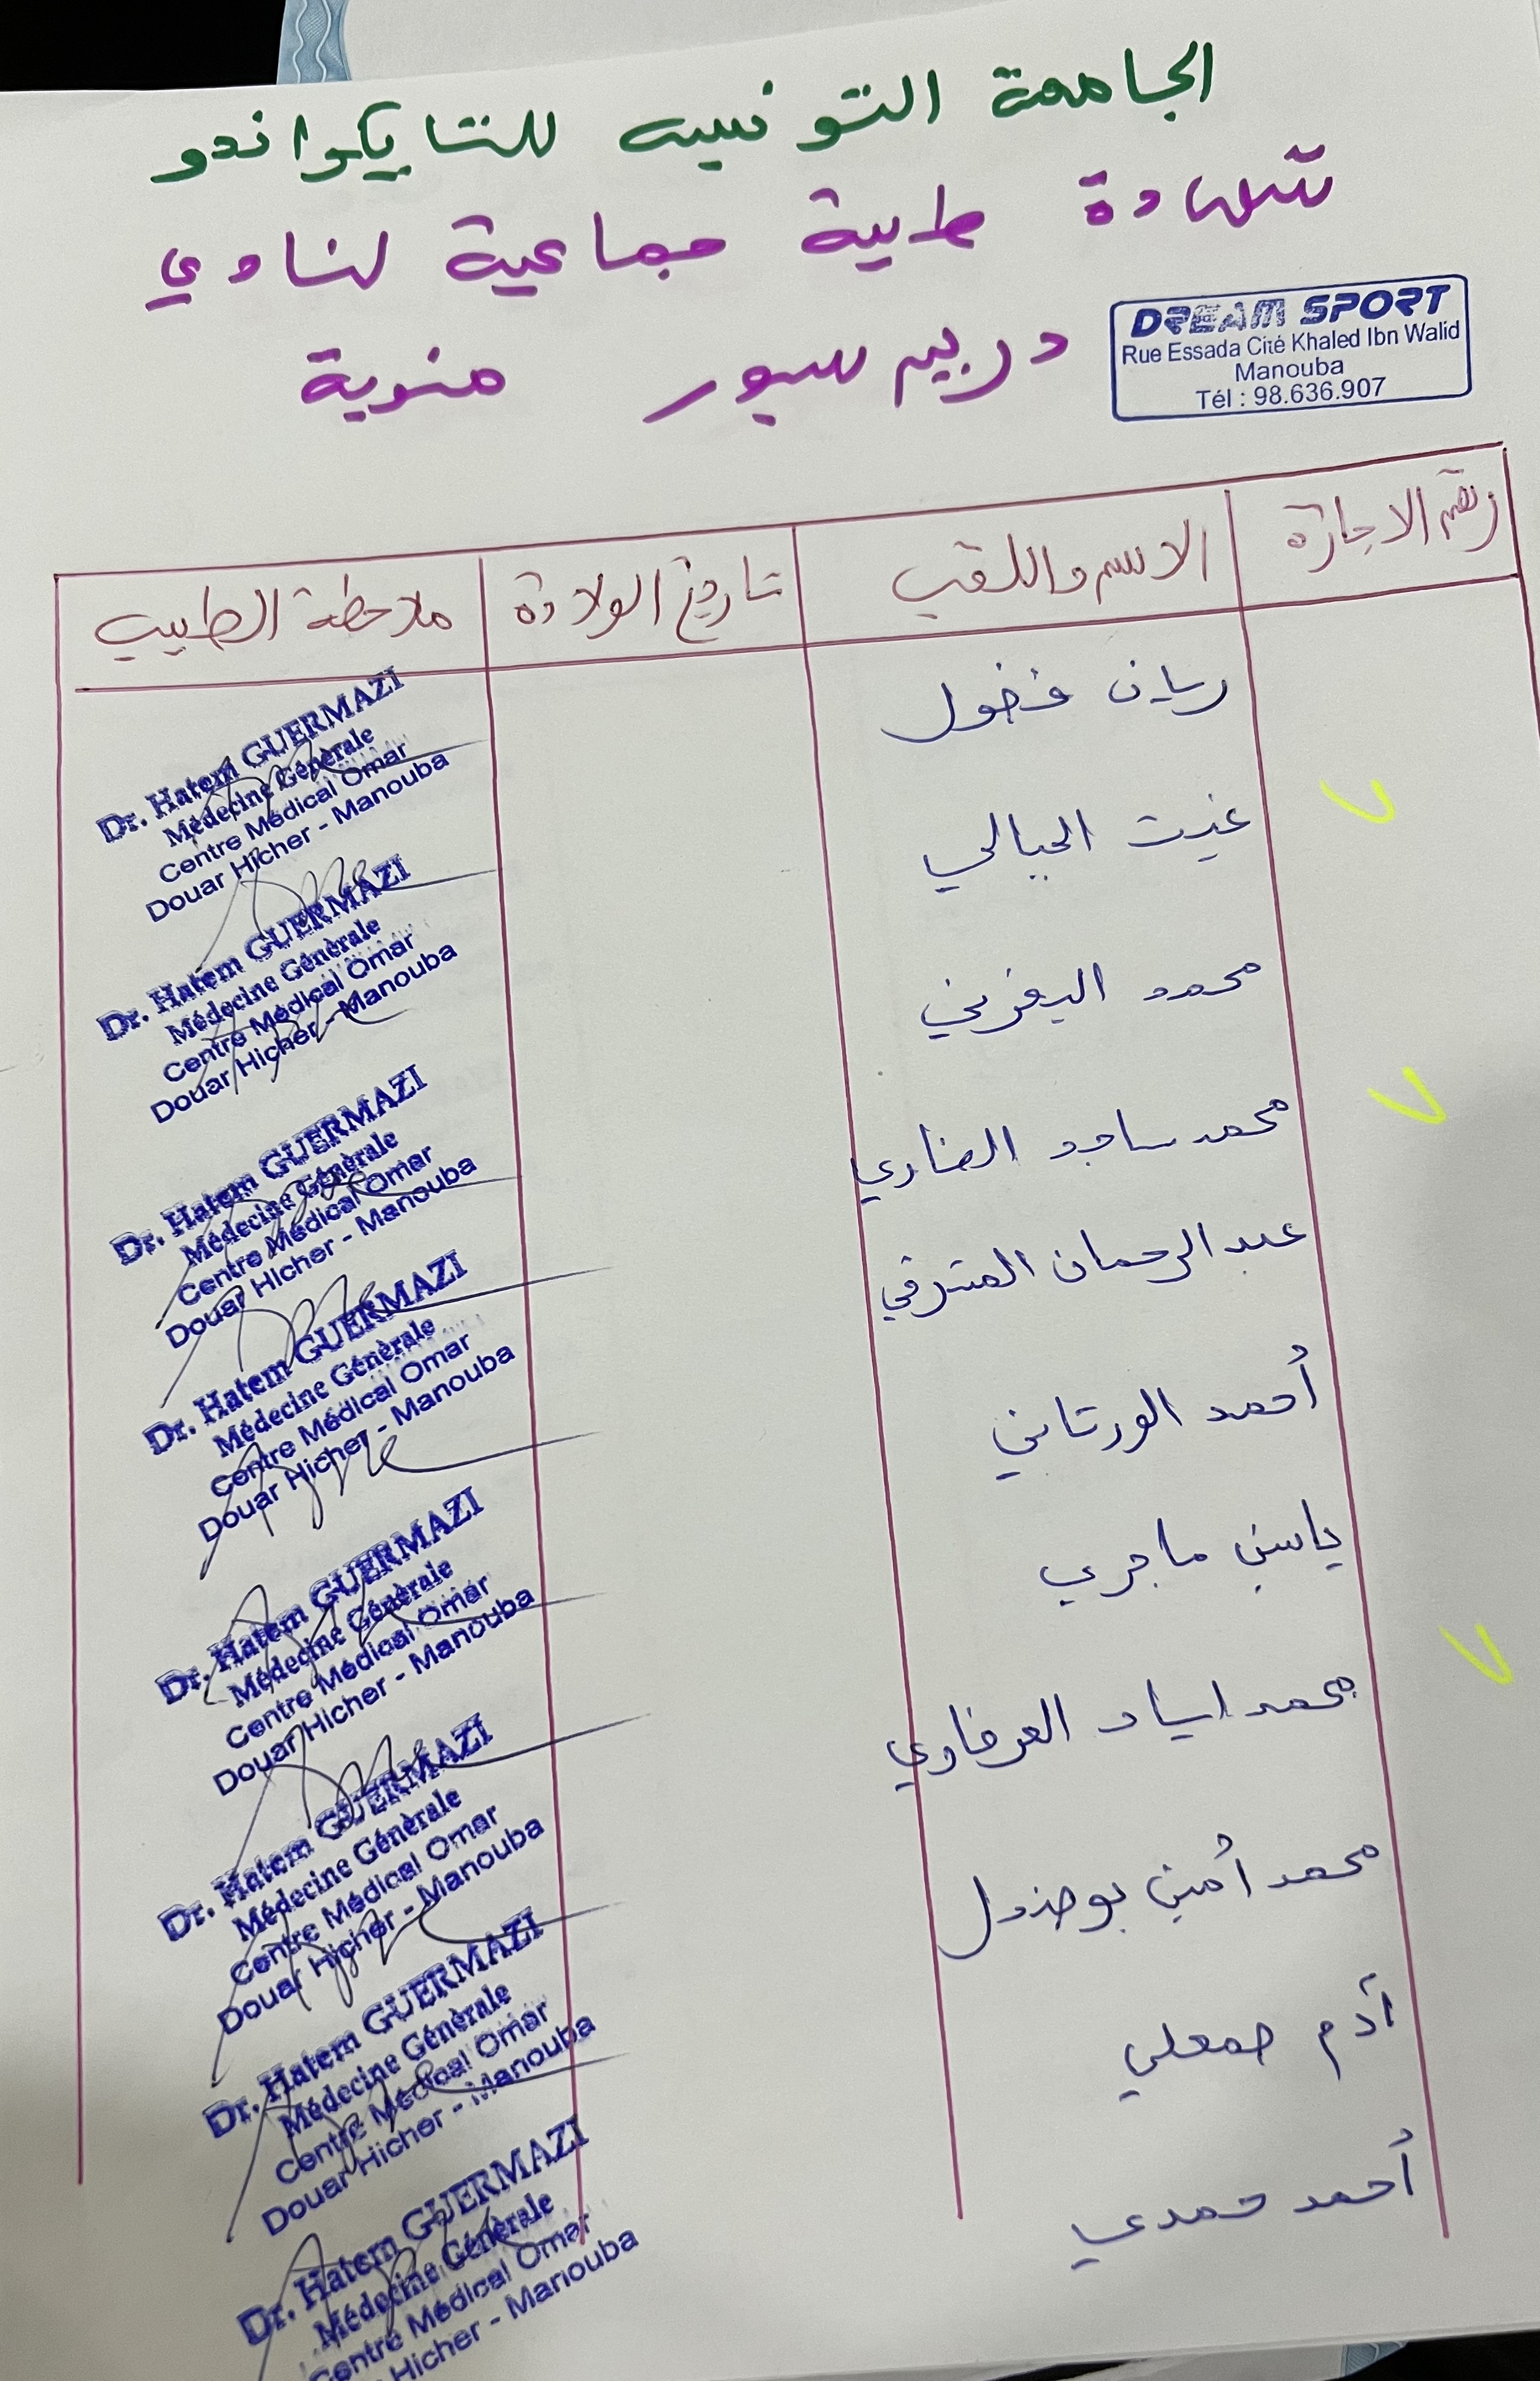 الجامعة التونسية للتايكواندو
شهادة طبية جماعية لنادي
دريم سبور منوبة
DREAM SPORT
Rue Essada Cité Khaled Ibn Walid
Manouba
Tél : 98.636.907
رقم الاجازة الاسم واللقب تاريخ الولادة ملاحظة الطبيب
ريان فضول
غيث الجبالي
محمد اليفرني
محمد ساجد الضاوي
عبد الرحمان المشرقي
أحمد الورتاني
ياسين ماجري
محمد اياد العرفاوي
محمد أمين بوصندل
آدم جمعلي
أحمد حمدي
Dr. Hatem GUERMAZI
Médecine Générale
Centre Médical Omar
Douar Hicher - Manouba
Dr. Hatem GUERMAZI
Médecine Générale
Centre Médical Omar
Douar Hicher - Manouba
Dr. Hatem GUERMAZI
Médecine Générale
Centre Médical Omar
Douar Hicher - Manouba
Dr. Hatem GUERMAZI
Médecine Générale
Centre Médical Omar
Douar Hicher - Manouba
Dr. Hatem GUERMAZI
Médecine Générale
Centre Médical Omar
Douar Hicher - Manouba
Dr. Hatem GUERMAZI
Médecine Générale
Centre Médical Omar
Douar Hicher - Manouba
Dr. Hatem GUERMAZI
Médecine Générale
Centre Médical Omar
Douar Hicher - Manouba
Dr. Hatem GUERMAZI
Médecine Générale
Centre Médical Omar
Hicher - Manouba